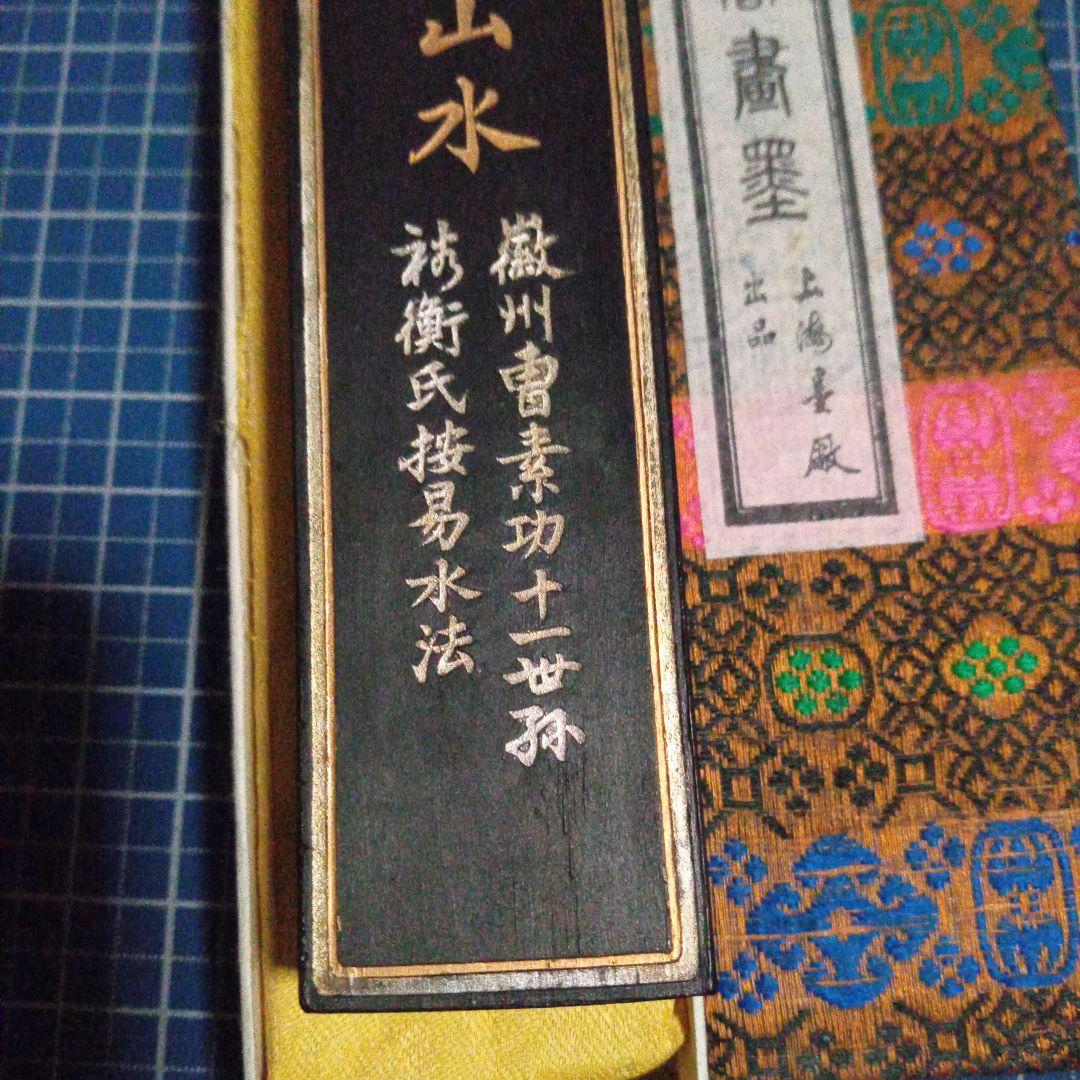 山水
徽州曹素功十一世孫
裕衡氏按易水法
畫墨
上海墨厰
出品